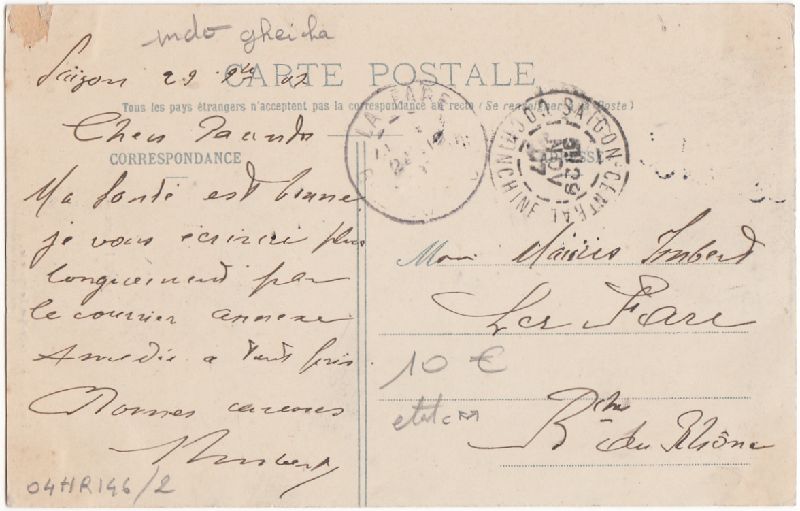 indo gheisha
Saïgon 29 9bre 07
CARTE POSTALE
Tous les pays étrangers n'acceptent pas la correspondance au recto (Se renseigner à la Poste)
Chers Parents
CORRESPONDANCE
ADRESSE
Ma santé est bonne
je vous écrirai plus
longuement par
le courrier annexe
Amedée a
Bonnes caresses
Imbert
LA FARE
SAIGON-CENTRAL
COCHINCHINE
29
NOV
07
Imbert
La Fare
Bches du Rhône
10 €
etat
04HR146/2